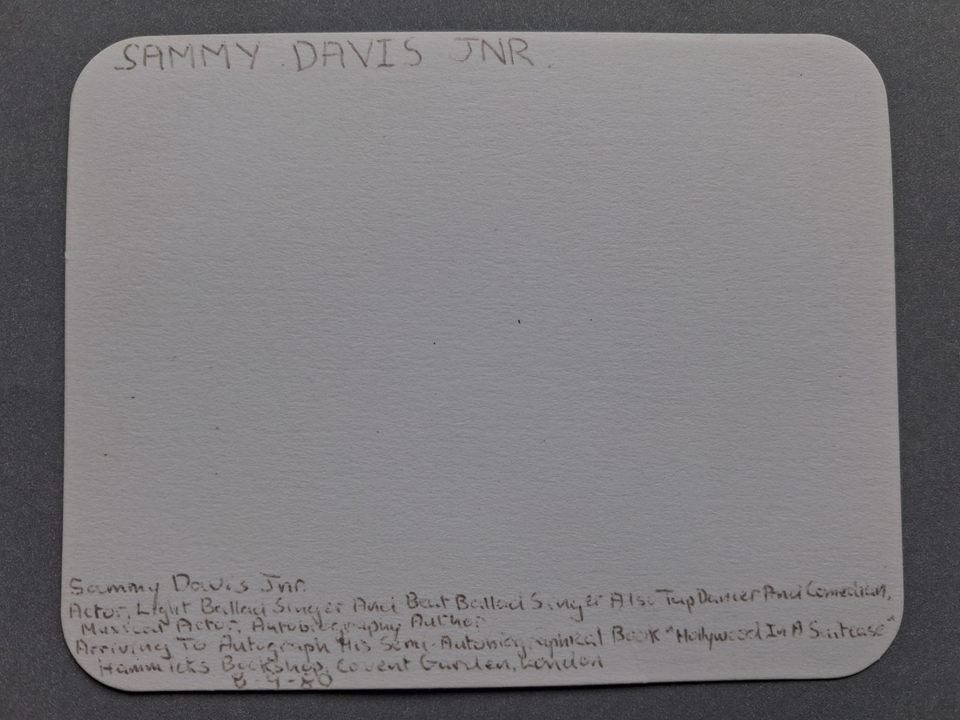 SAMMY DAVIS JNR.
Sammy Davis Jnr.
Actor, Light Ballad Singer And Beat Ballad Singer Also Tap Dancer And Comedian,
Musical Actor, Autobiography Author
Arriving To Autograph His Semi-Autobiographical Book "Hollywood In A Suitcase"
Hammicks Bookshop, Covent Garden, London